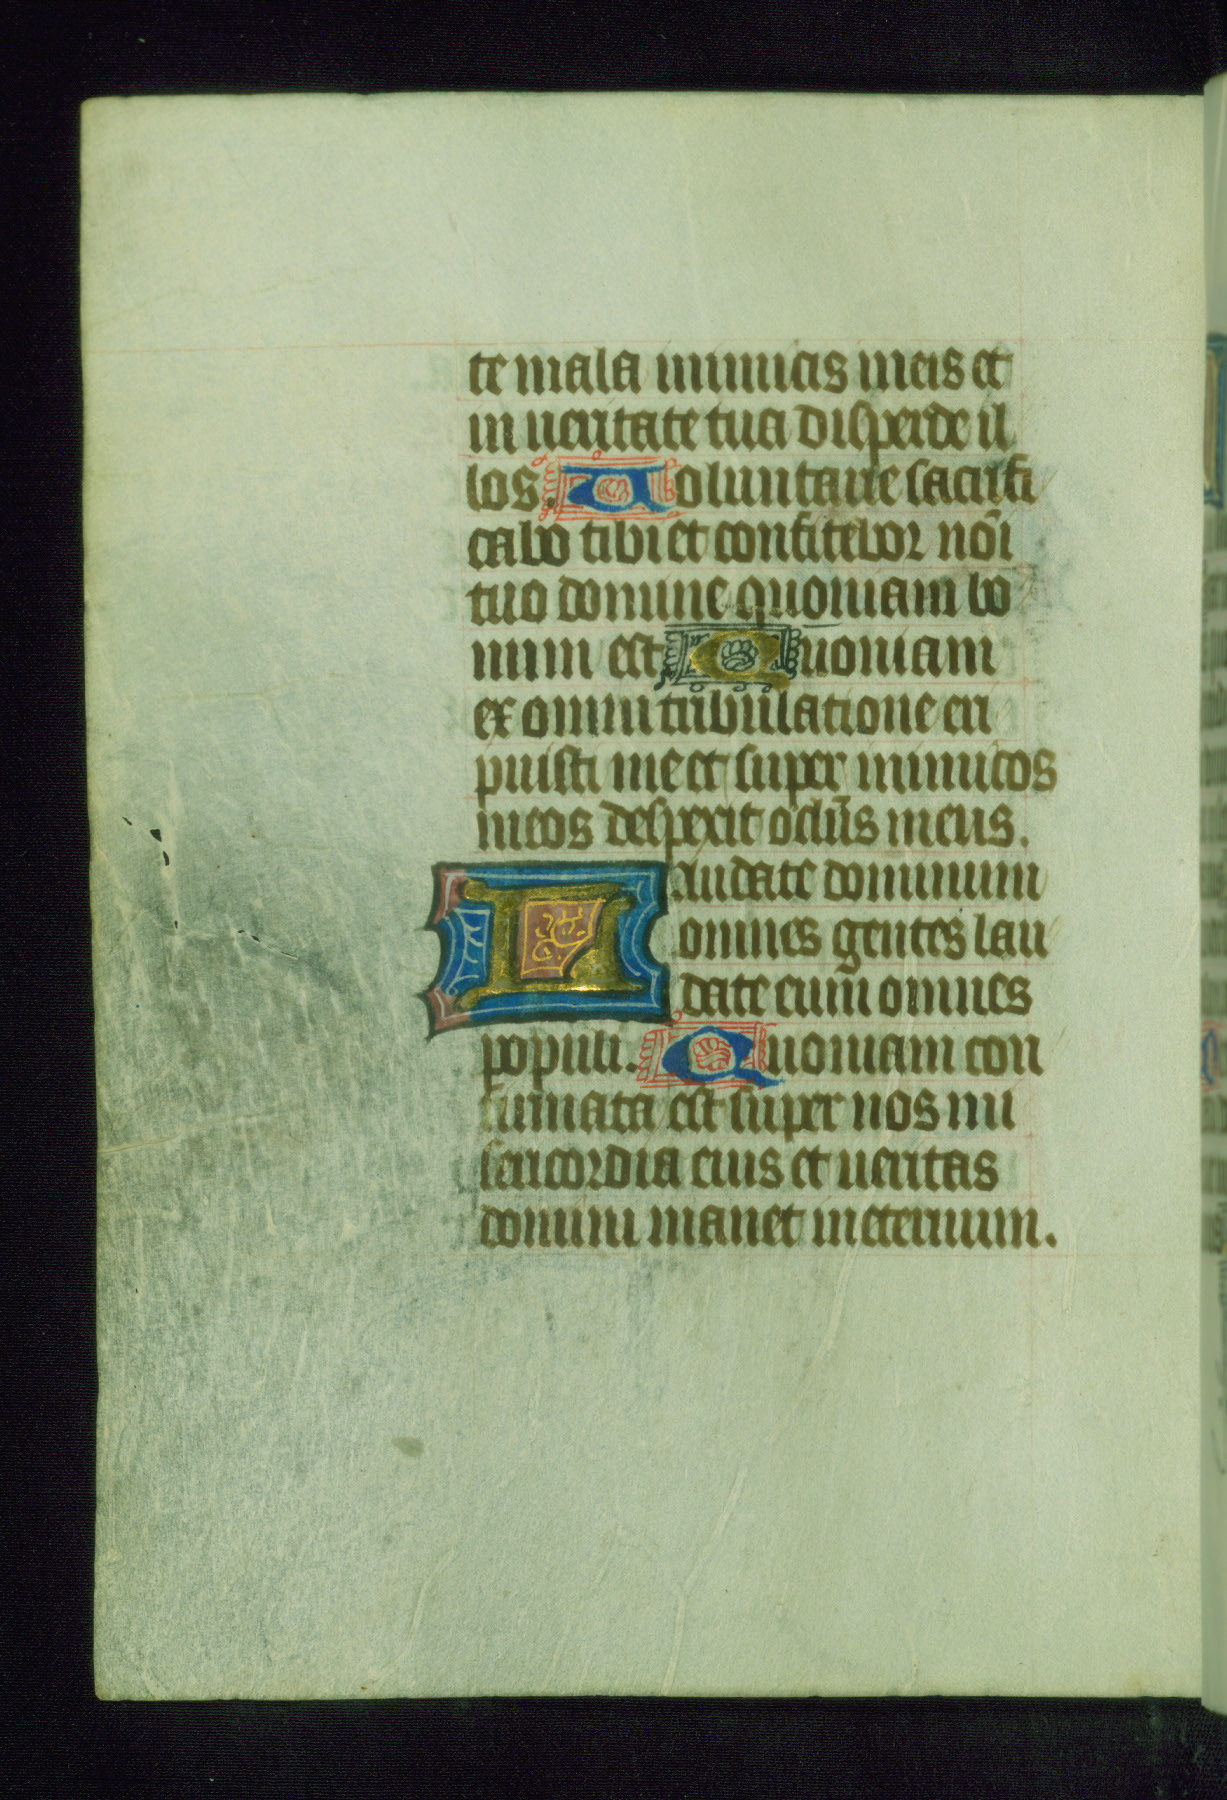 te mala inimicis meis et
in ueritate tua disperde il
los. Uoluntarie sacrifi
cabo tibi et confitebor nōi
tuo domine quoniam bo
num est Quoniam
ex omni tribulatione eri
puisti me et super inimicos
meos despexit oclūs meus.
Laudate dominum
omnes gentes lau
date eum omnes
populi. Quoniam con
firmata est super nos mi
sericordia eius et ueritas
domini manet ineternum.